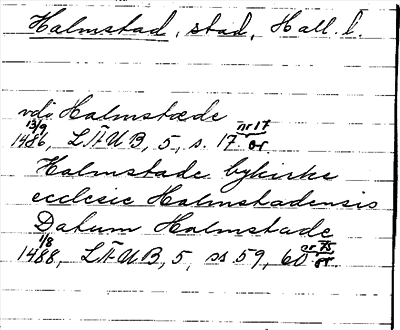 Halmstad, stad, Hall. l.
vdi Halmstæde
13/9 1486, LÄUB, 5, s. 17. nr 17 or.
Halmstade bykirke
ecclesie Halmstadensis
Datum Halmstade
1/8 1488, LÄUB, 5, ss 59, 60 nr 75 or.